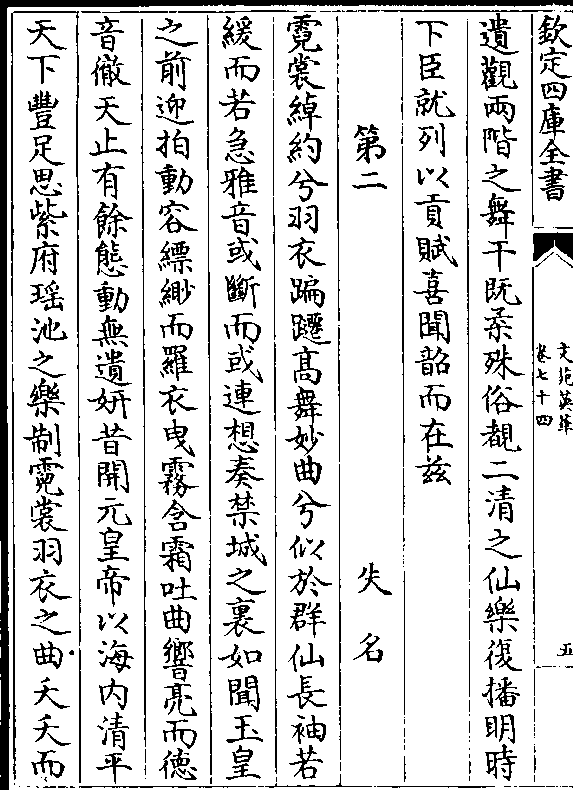 欽定四庫全書
文苑英華
卷七十四
五
遺觀兩階之舞干既柔殊俗覩二清之仙樂復播明時
下臣就列以貢賦喜聞韶而在兹
第二
失名
霓裳綽約兮羽衣蹁躚高舞妙曲兮似於群仙長袖若
緩而若急雅音或斷而或連想奏禁城之裏如聞玉皇
之前迎拍動容縹緲而羅衣曳霧含霜吐曲響亮而徳
音徹天止有餘態動無遺妍昔開元皇帝以海内清平
天下豐足思紫府瑶池之樂制霓裳羽衣之曲夭夭而